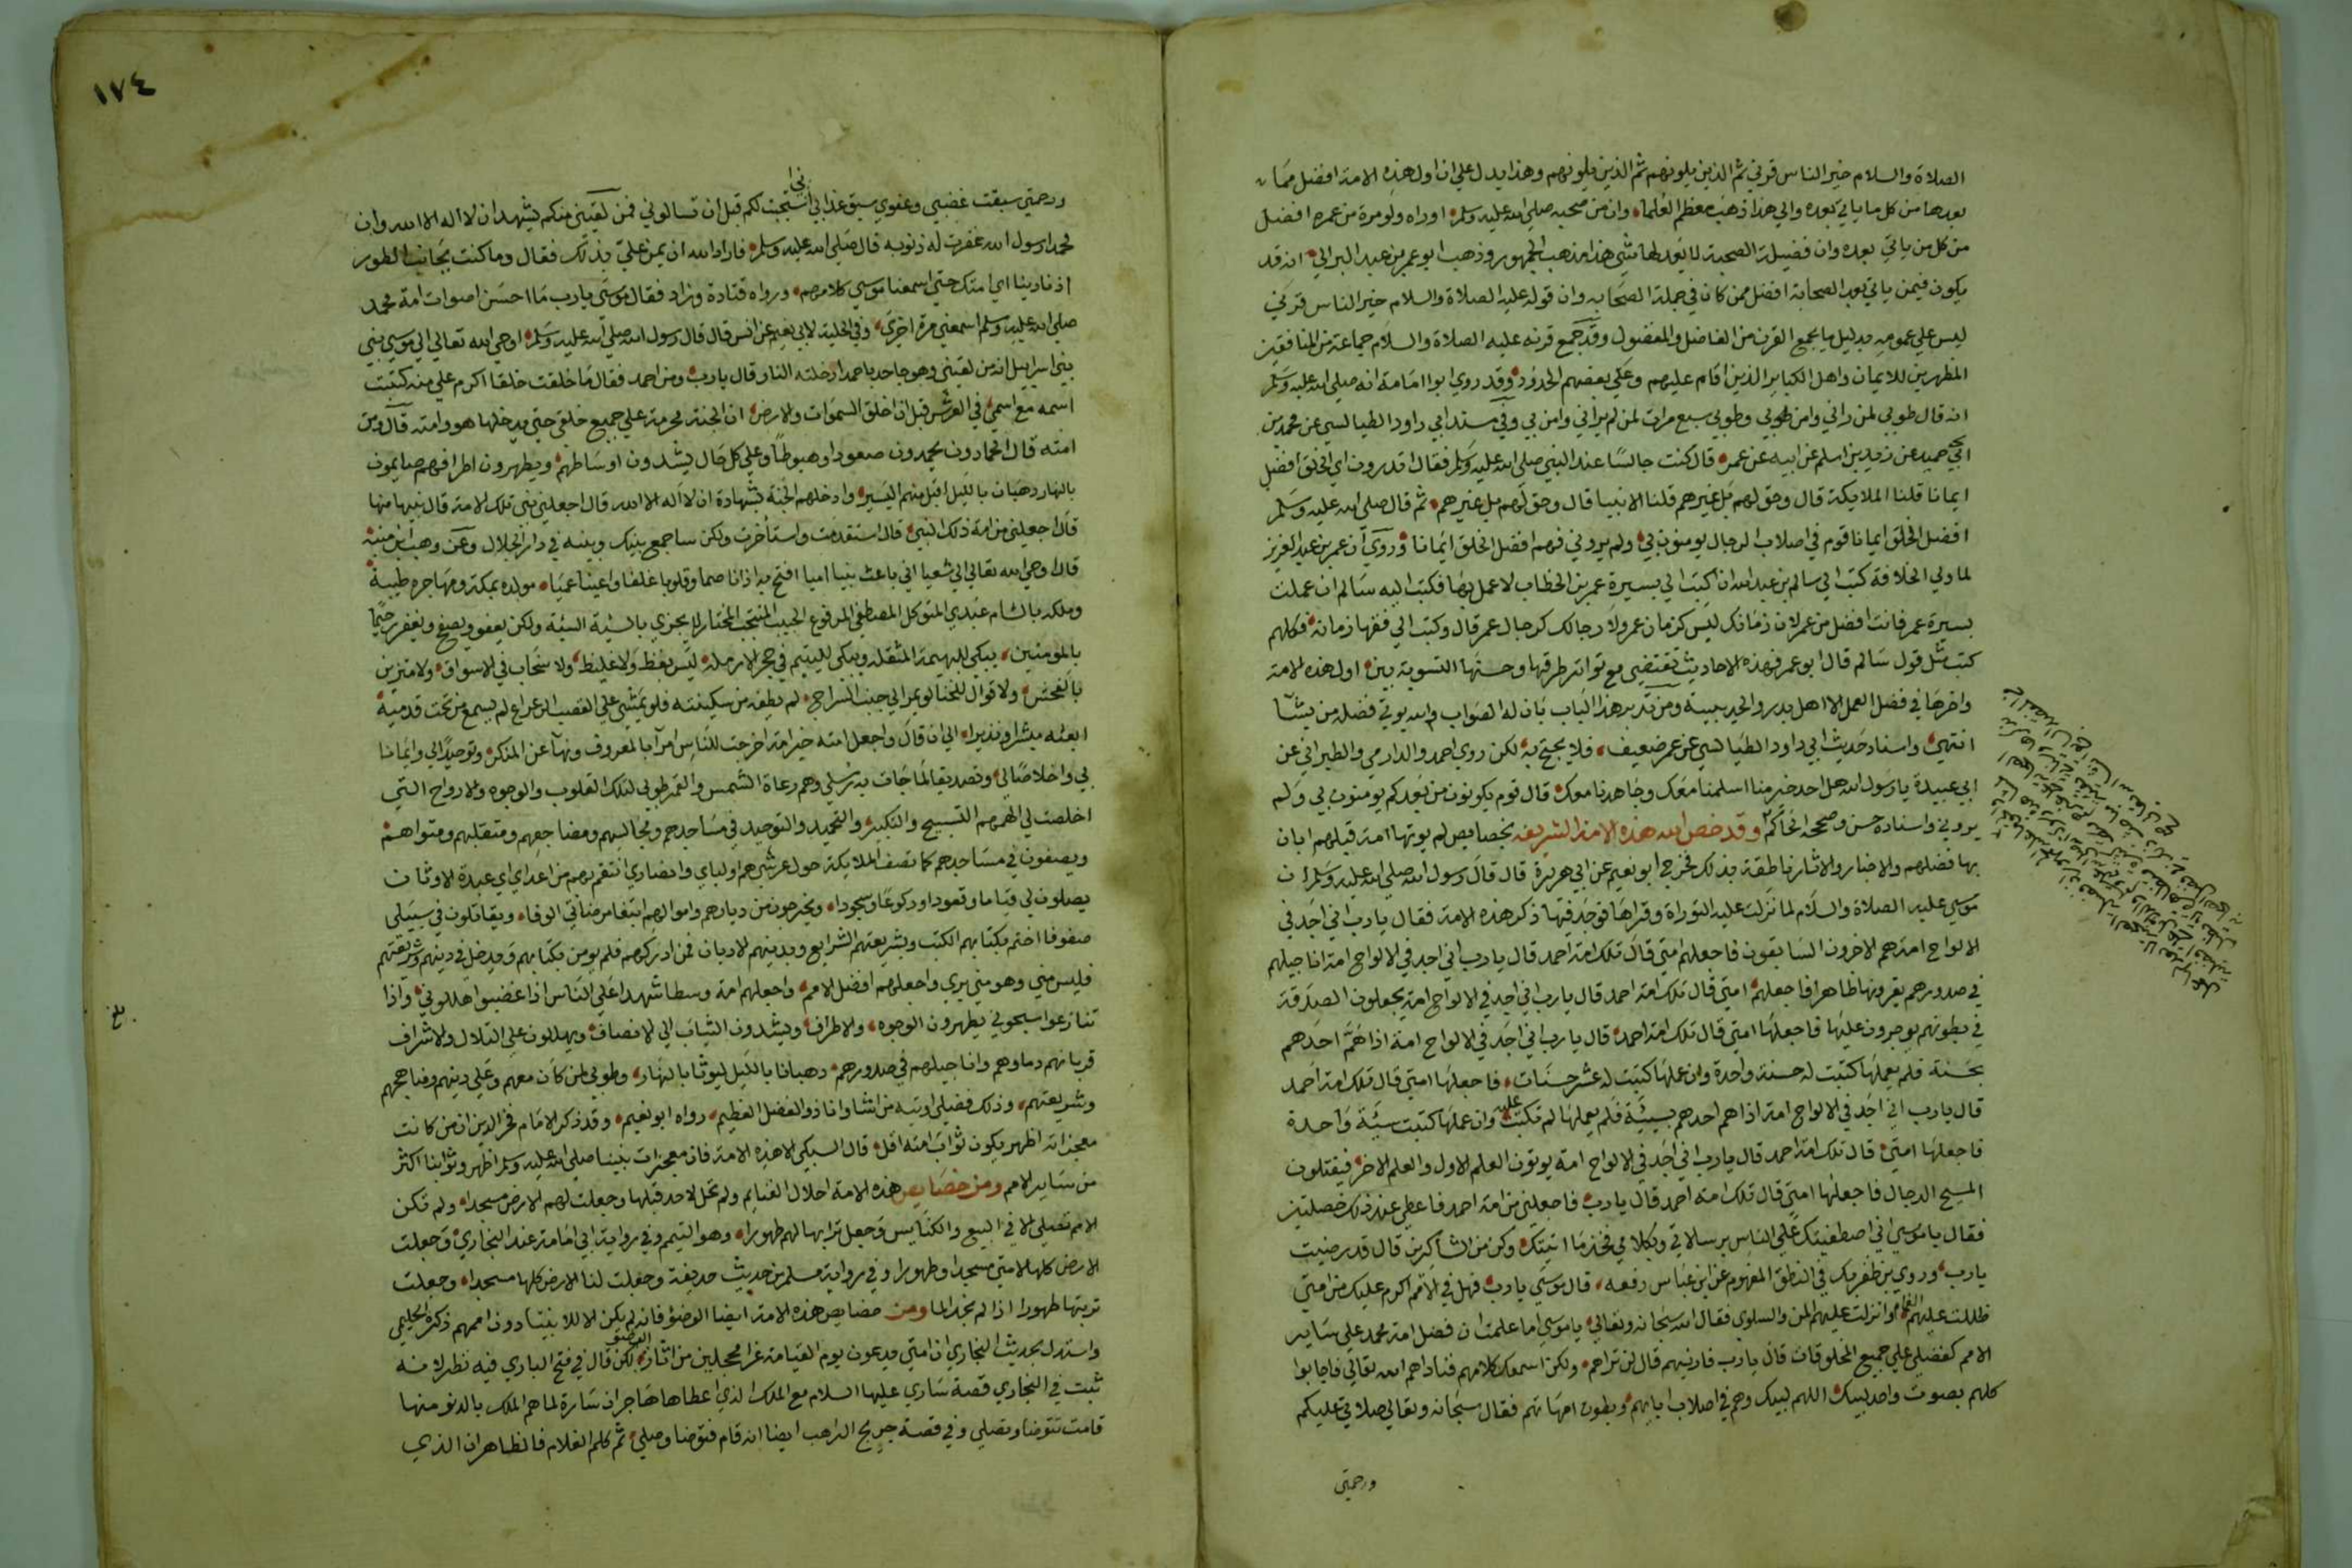 الصلاة والسلام خير الناس قرني ثم الذين يلونهم ثم الذين يلونهم وهذا يدل علي ان اول هذه الامة افضل ممان
بعدها من كل ما ياتي بعده والي هذا ذهب معظم العلماء وان من صحبه صلي الله عليه وسلم اوراه ولو مرة من عمره افضل
من كل من ياتي بعده وان فضيلة الصحبة لا يعدلها شي هذا مذهب الجمهور وذهب ابو عمر بن عبد البر الي انه قد
يكون فيمن ياتي بعد الصحابة افضل ممن كان في جملة الصحابه وان قوله عليه الصلاة والسلام خير الناس قرني
ليس علي عمومه بدليل ما يجمع القرن من الفاضل والمفضول وقد جمع قرنه عليه الصلاة والسلام جماعة من المنافقين
المظهرين للايمان واهل الكباير الذين اقام عليهم وعلي بعضهم الحدود وقد روي ابو امامة انه صلي الله عليه وسلم
انه قال طوبي لمن راني وامن بي وطوبي سبع مرات لمن لم يراني وامن بي وفي مسند ابي داود الطيالسي عن محمد بن
ابي حميد عن زيد بن اسلم عن ابيه عن عمر قال كنت جالسا عند النبي صلي الله عليه وسلم فقال اتدرون اي الخلق افضل
ايمانا قلنا الملايكة قال وحق لهم بل غيرهم قلنا الانبيا قال وحق لهم بل غيرهم ثم قال صلي الله عليه وسلم
افضل الخلق ايمانا قوم في اصلاب الرجال يومنون بي ولم يروني فهم افضل الخلق ايمانا وروي ان عمر بن عبد العزيز
لما ولي الخلافة كتب الي سالم بن عبد الله ان اكتب الي بسيرة عمر بن الخطاب لاعمل بها فكتب اليه سالم ان عملت
بسيرة عمر فانت افضل من عمر لان زمانك ليس كزمان عمر ولا رجالك كرجال عمر قال وكتب الي فقها زمانه فكلهم
كتب مثل قول سالم قال ابو عمر فهذه الاحاديث تقتضي مع تواتر طرقها وحسنها التسوية بين اول هذه الامة
واخرها في فضل العمل الا اهل بدر والحديبية ومن تدبر هذا الباب بان له الصواب والله يوتي فضله من يشآ
انتهي واسناد حديث ابي داود الطيالسي عن عمر ضعيف فلا يحتج به لكن روي احمد والدارمي والطبراني عن
ابي عبيدة يا رسول الله هل احد خير منا اسلمنا معك وجاهدنا معك قال قوم يكونون من بعدكم يومنون بي ولم
يروني واسناده حسن وصححه الحاكم وقد خص الله هذه الامة الشريفه بخصايص لم يوتها امة قبلهم ابان
بها فضلهم والاخبار والاثار ناطقة بذلك فخرج ابو نعيم عن ابي هريرة قال قال رسول الله صلي الله عليه وسلم ان
موسي عليه الصلاة والسلام لما نزلت عليه التوراة وقراها فوجد فيها ذكر هذه الامة فقال يا رب اني اجد في
الالواح امة هم الاخرون السابقون فاجعلهم امتي قال تلك امة احمد قال يا رب اني اجد في الالواح امة اناجيلهم
في صدورهم يقرونها ظاهرا فاجعلهم امتي قال تلك امة احمد قال يا رب اني اجد في الالواح امة يجعلون الصدقة
في بطونهم يوجرون عليها فاجعلها امتي قال تلك امة احمد قال يا رب اني اجد في الالواح امة اذا هم احدهم
بحسنة فلم يعملها كتبت له حسنة واحدة وان عملها كتبت له عشر حسنات فاجعلها امتي قال تلك امة احمد
قال يا رب اني اجد في الالواح امة اذا هم احدهم بسيئة فلم يعملها لم تكتب عليه وان عملها كتبت سيئة واحدة
فاجعلها امتي قال تلك امة احمد قال يا رب اني اجد في الالواح امة يوتون العلم الاول والعلم الاخر فيقتلون
المسيح الدجال فاجعلها امتي قال تلك امة احمد قال يا رب فاجعلني من امة احمد فاعطي عند ذلك خصلتين
فقال يا موسي اني اصطفيتك علي الناس برسالاتي وبكلامي فخذ ما اتيتك وكن من الشاكرين قال قد رضيت
يا رب وروي بن ظفر بك في النطق المفهوم عن ابن عباس رفعه قال موسي يا رب فهل في الامم اكرم عليك من امتي
ظللت عليهم الغمام وانزلت عليهم المن والسلوي فقال الله سبحانه وتعالي يا موسي اما علمت ان فضل امة محمد علي ساير
الامم كفضلي علي جميع المخلوقات قال يا رب فارنيهم قال لن تراهم ولكن اسمعك كلامهم فناداهم الله تعالي فاجابوا
كلهم بصوت واحد لبيك اللهم لبيك وهم في اصلاب ابايهم وبطون امهاتهم فقال سبحانه وتعالي صلاتي عليكم
ورحمتي
١٧٤
ورحمتي سبقت غضبي وعفوي سبق عذابي استجبت لكم قبل ان تسالوني فمن لقيني منكم يشهد ان لا اله الا الله وان
محمدا رسول الله غفرت له ذنوبه قال صلي الله عليه وسلم فاراد الله ان يمن علي بذلك فقال وما كنت بجانب الطور
اذ نادينا اي امتك حتي اسمعنا موسي كلامهم ورواه قتادة وزاد فقال موسي يا رب ما احسن اصوات امة محمد
صلي الله عليه وسلم اسمعني مرة اخري وفي الحلية لابي نعيم عن انس قال قال رسول الله صلي الله عليه وسلم اوحي الله تعالي الي موسي نبي
بني اسرايل انه من لقيني وهو جاحد باحمد ادخلته النار قال يا رب ومن احمد فقال ما خلقت خلقا اكرم علي منه كتبت
اسمه مع اسمي في العرش قبل ان اخلق السموات والارض ان الجنة محرمة علي جميع خلقي حتي يدخلها هو وامته قال ومن
امته قال الحمادون يحمدون صعودا وهبوطا وعلي كل حال يشدون اوساطهم ويطهرون اطرافهم صايمون
بالنهار رهبان بالليل اقبل منهم اليسير وادخلهم الجنة بشهادة ان لا اله الا الله قال اجعلني نبي تلك الامة قال نبيها منها
قال اجعلني من امة ذلك النبي قال استقدمت واستأخرت ولكن ساجمع بينك وبينه في دار الجلال وعن وهب ابن منبه
قال اوحي الله تعالي الي شعيا اني باعث نبيا اميا افتح به اذانا صما وقلوبا غلفا واعينا عميا مولده بمكة ومهاجره طيبة
وملكه بالشام عبدي المتوكل المصطفي المرفوع الحبيب المنتجب المختار لا يجزي بالسيئة السيئة ولكن يعفو ويصفح ويغفر رحيما
بالمومنين يبكي للبهيمة المثقله ويبكي لليتيم في حجر الارملة ليس بفظ ولا غليظ ولا سخاب في الاسواق ولا متزين
بالفحش ولا قوال للخنا لو يمر الي جنب السراج لم يطفه من سكينته فلو يمشي علي القصب الرعراع لم يسمع من تحت قدميه
ابعثه مبشرا ونذيرا الي ان قال واجعل امته خير امة اخرجت للناس امرا بالمعروف ونهيا عن المنكر وتوحيدا لي وايمانا
بي واخلاصا لي وتصديقا لما جات به رسلي وهم رعاة الشمس والقمر طوبي لتلك القلوب والوجوه والارواح التي
اخلصت لي الهمهم التسبيح والتكبير والتحميد والتوحيد في مساجدهم ومجالسهم ومضاجعهم ومتقلبهم ومثواهم
ويصفون في مساجدهم كما تصف الملايكة حول عرشي هم اوليايي وانصاري انتقم بهم من اعدايي عبدة الاوثان
يصلون لي قياما وقعودا وركوعا وسجودا ويخرجون من ديارهم واموالهم ابتغا مرضاتي الوفا ويقاتلون في سبيلي
صفوفا اختم بكتابهم الكتب وبشريعتهم الشرايع وبدينهم الاديان فمن ادركهم فلم يومن بكتابهم ويدخل في دينهم وشريعتهم
فليس مني وهو مني بري واجعلهم افضل الامم واجعلهم امة وسطا شهدا علي الناس اذا غضبوا هللوني واذا
تنازعوا سبحوني يطهرون الوجوه والاطراف ويشدون الثياب الي الانصاف ويهللون علي التلال والاشراف
قربانهم دماوهم واناجيلهم في صدورهم رهبانا بالليل ليوثا بالنهار وطوبي لمن كان معهم وعلي دينهم ومناهجهم
وشريعتهم وذلك فضلي اوتيه من اشا وانا ذو الفضل العظيم رواه ابو نعيم وقد ذكر الامام فخر الدين ان من كانت
معجزاته اظهر يكون ثواب امته اقل قال السبكي الا هذه الامة فان معجزات نبينا صلي الله عليه وسلم اظهر وثوابنا اكثر
من ساير الامم ومن خصايص هذه الامة احلال الغنايم ولم تحل لاحد قبلها وجعلت لهم الارض مسجدا ولم تكن
الامم تصلي الا في البيع والكنايس وجعل ترابها لهم طهورا وهو التيمم وفي رواية ابي امامة عند البخاري وجعلت
الارض كلها لامتي مسجدا وطهورا وفي رواية مسلم من حديث حذيفة وجعلت لنا الارض كلها مسجدا وجعلت
تربتها طهورا اذا لم نجد الما ومن خصايص هذه الامة ايضا الوضؤ فانه لم يكن الا للانبيا دون اممهم ذكره الحليمي
واستدل بحديث البخاري ان امتي يدعون يوم القيامة غرا محجلين من اثار الوضؤ لكن قال في فتح الباري فيه نظر لانه
ثبت في البخاري قصة ساري عليها السلام مع الملك الذي اعطاها هاجر ان سارة لما هم الملك بالدنو منها
قامت تتوضا وتصلي وفي قصة جريج الراهب ايضا انه قام فتوضا وصلي ثم كلم الغلام فالظاهر ان الذي
بلغ